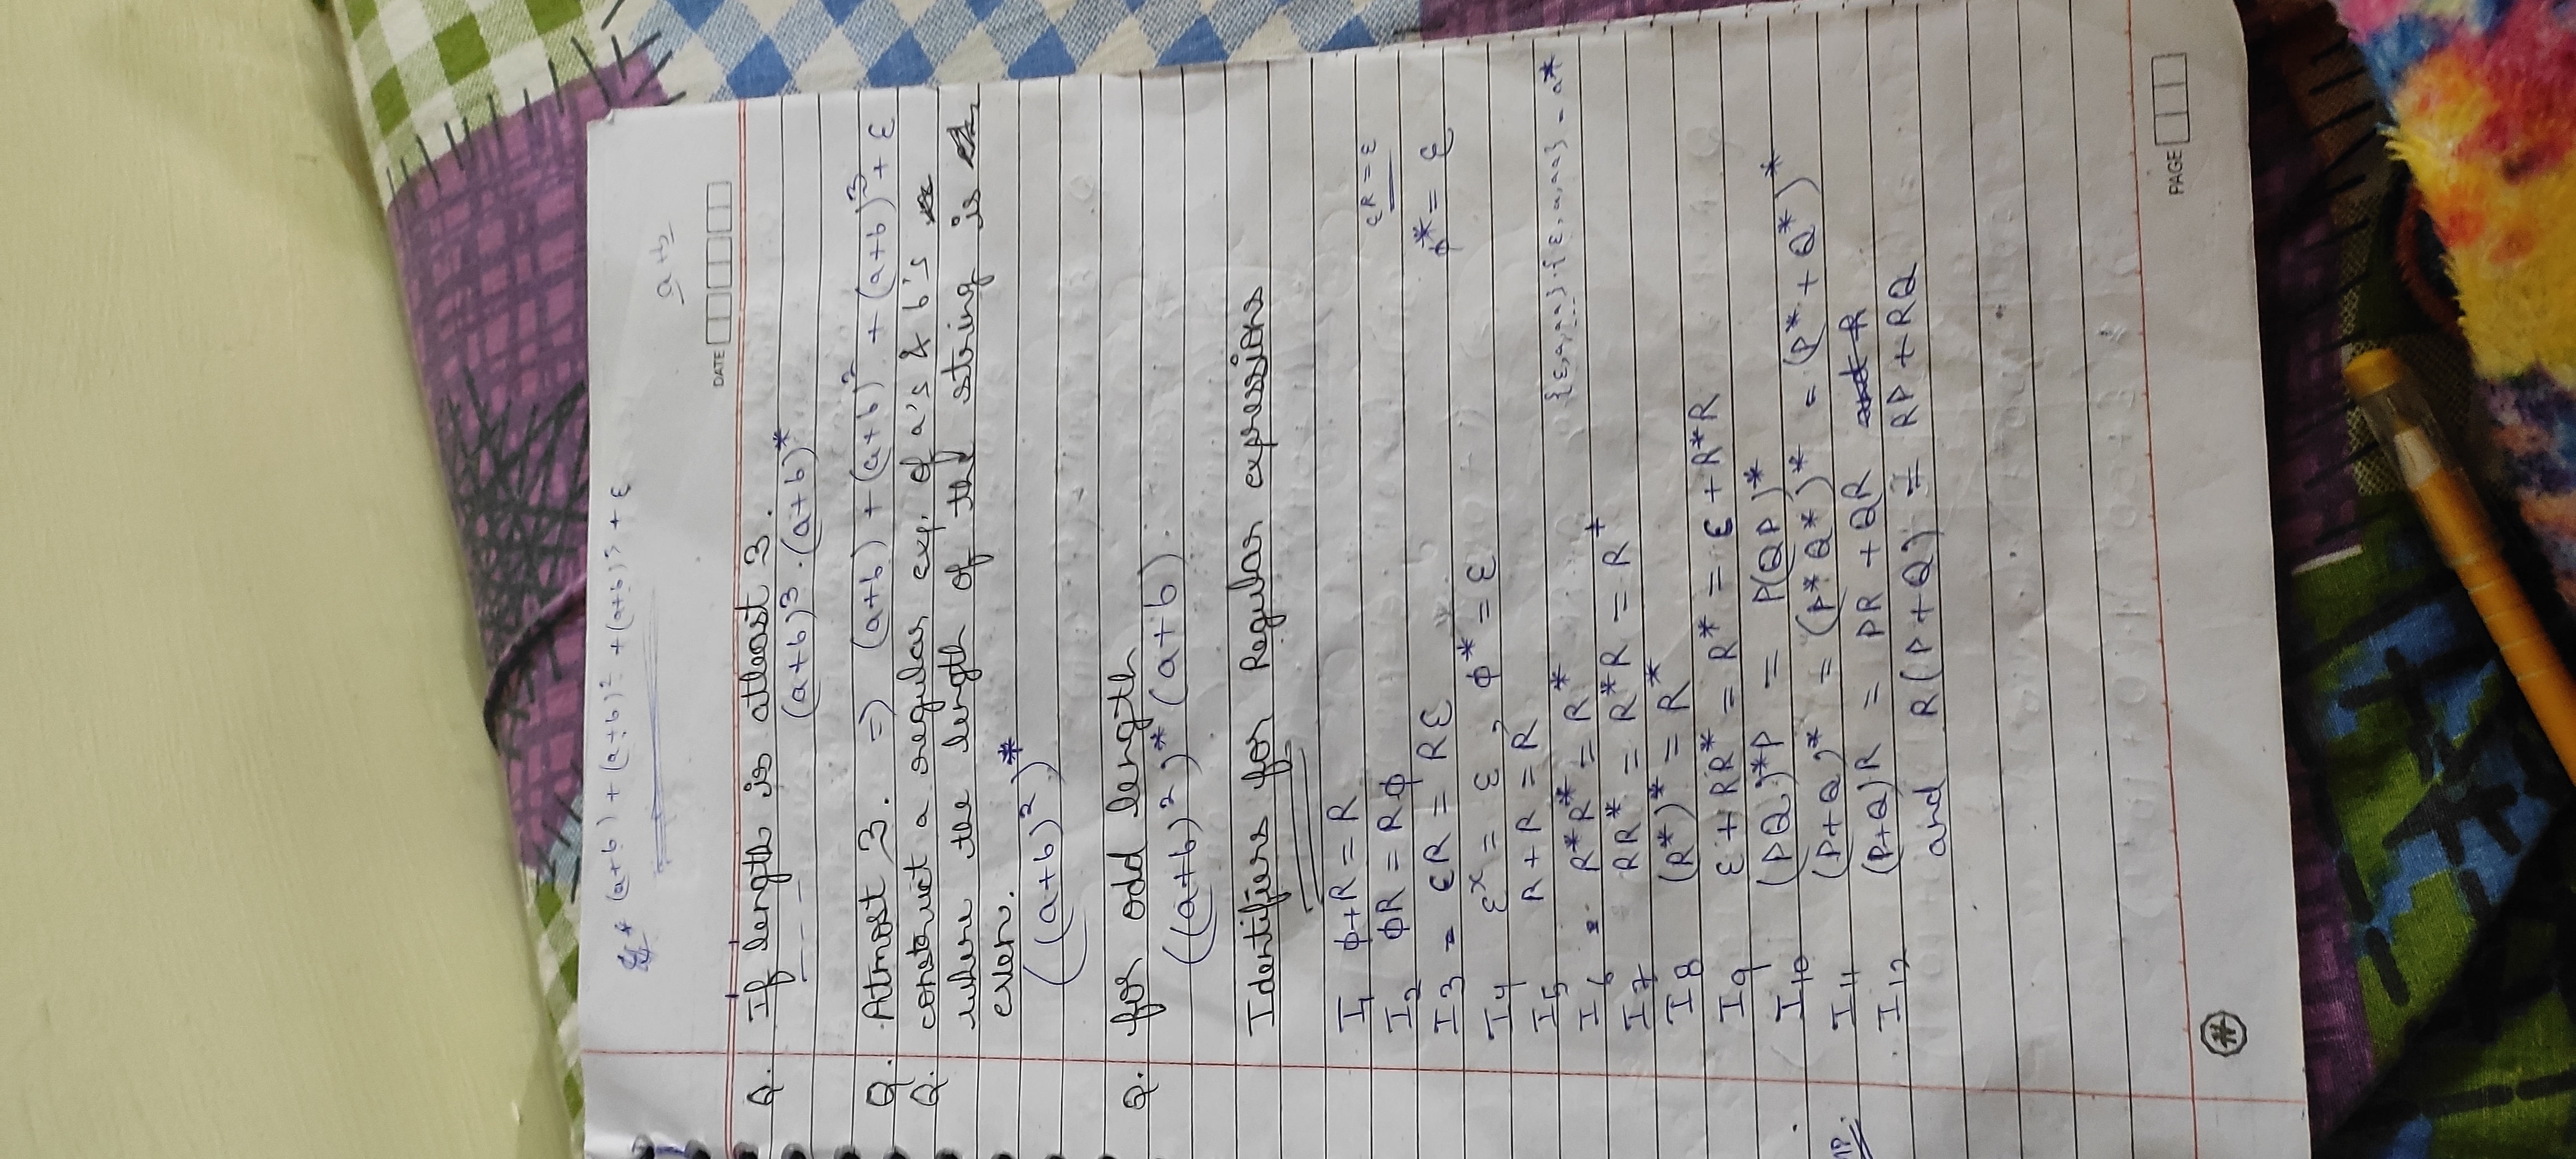 (a+b) + (a+b)² + (a+b)³ + ε
a+b
DATE
Q. If length is atleast 3.
(a+b)³.(a+b)*
Q. Atmost 3. => (a+b) + (a+b)² + (a+b)³ + ε
Q. construct a regular exp. of a's & b's
where the length of the string is
even.
((a+b)²)*
Q. for odd length
((a+b)²)* (a+b).
Identifiers for Regular expressions
I1 ϕ+R = R
I2 ϕR = Rϕ
εR = ε
I3 = εR = Rε
ϕ* = ε
I4 εˣ = ε , ϕ* = ε
I5 R + R = R
I6 = R*R* = R*
{ε,a,aa}.{ε,a,aa} = a*
I7 RR* = R*R = R⁺
I8 (R*)* = R*
I9 ε + RR* = R* = ε + R*R
I10 (PQ)*P = P(QP)*
I11 (P+Q)* = (P*Q*)* = (P* + Q*)*
I12 (P+Q)R = PR + QR
and R(P+Q) = RP + RQ
PAGE